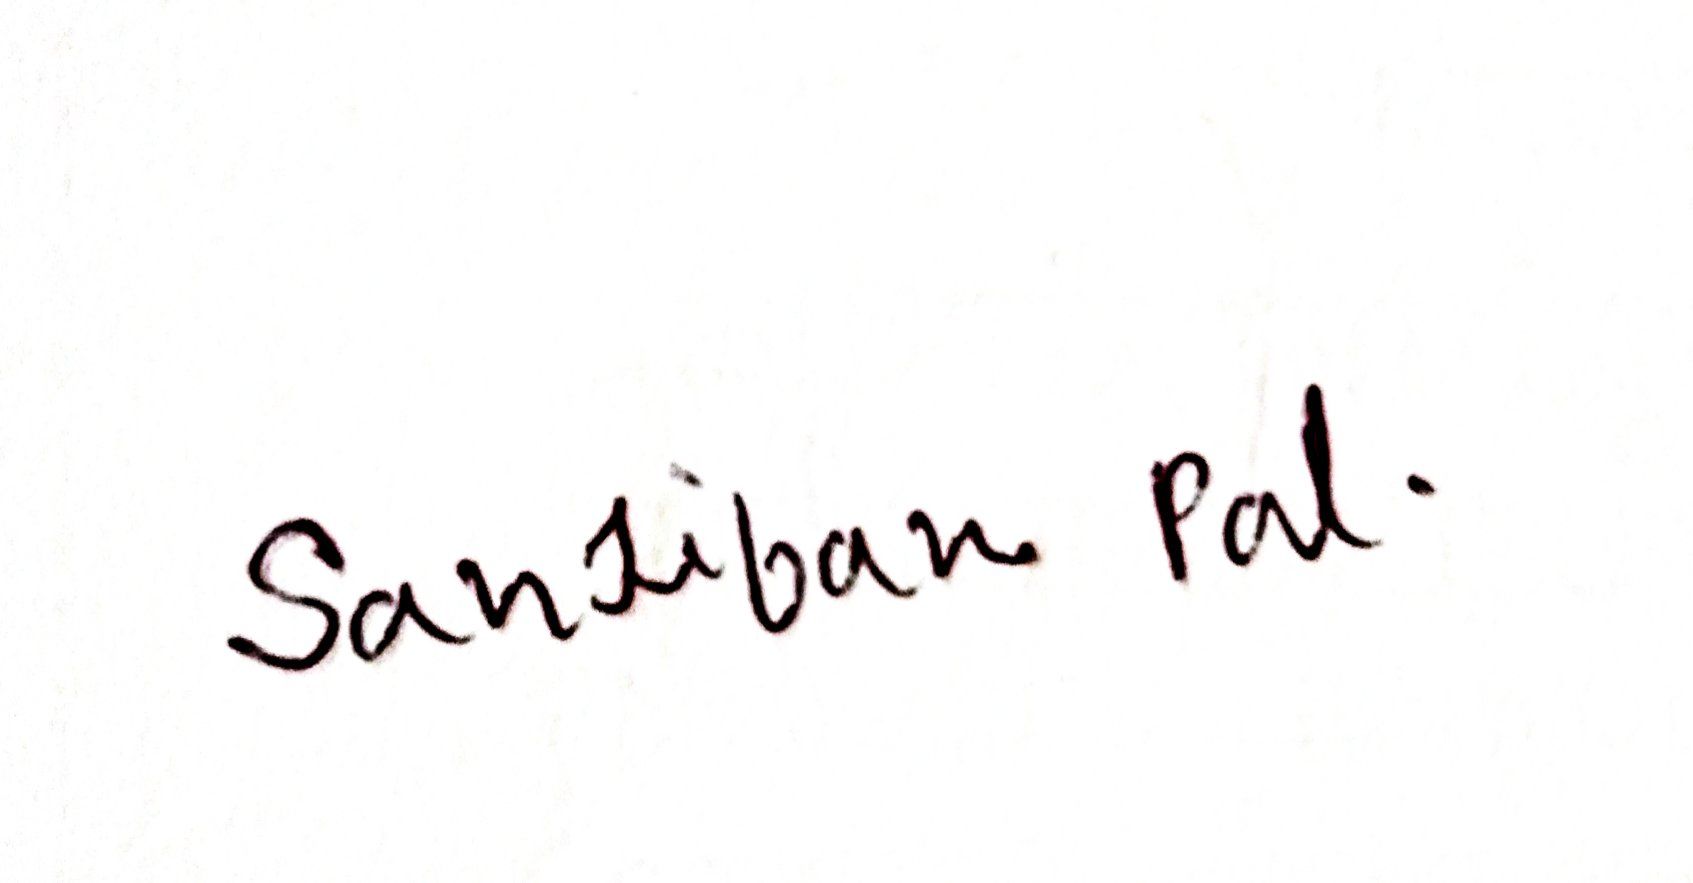 Sanjiban Pal.